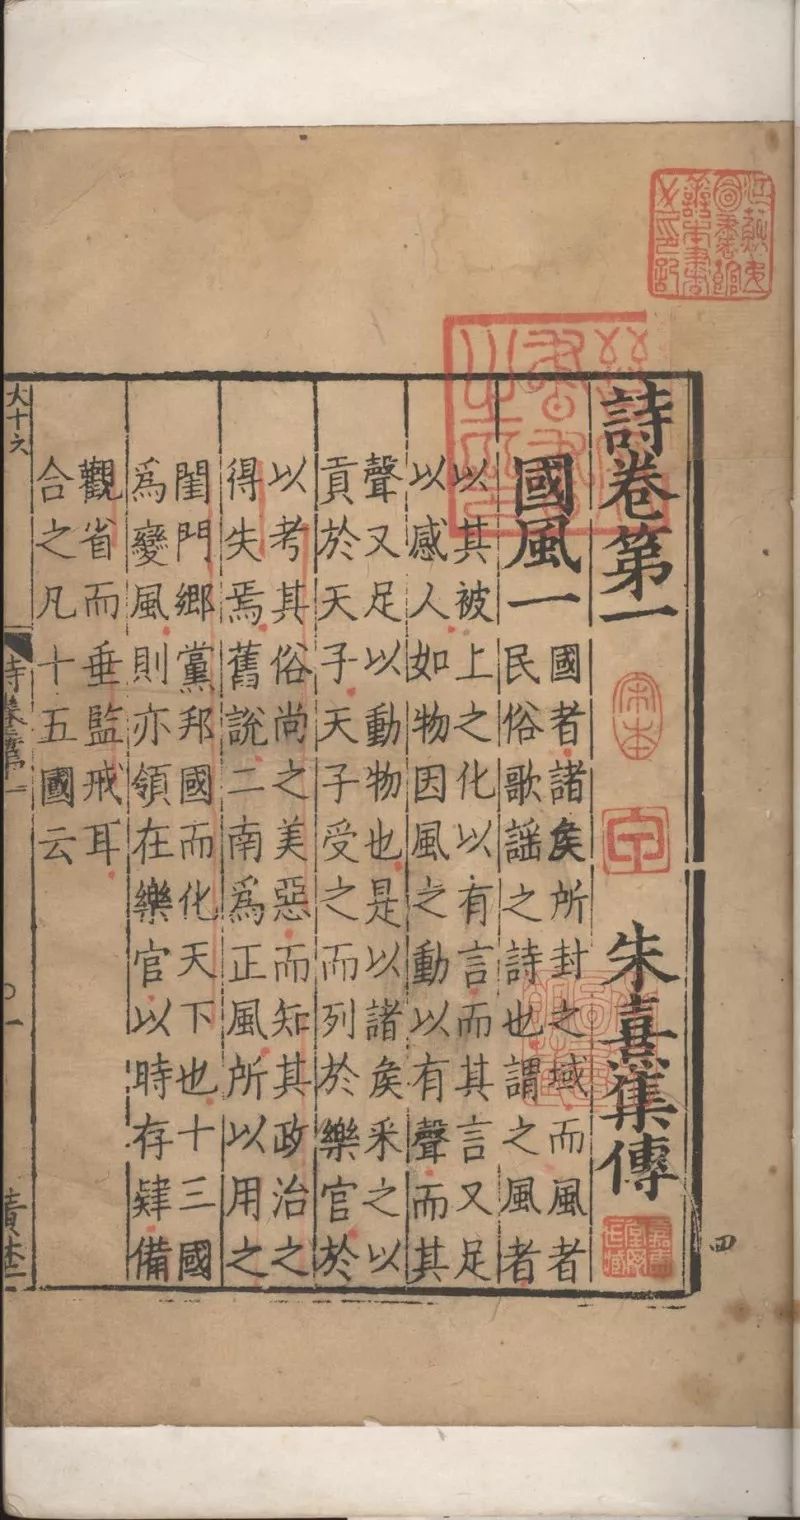 詩卷第一
宋本
朱熹集傳
國風一
國者諸矦所封之域而風者
民俗歌謡之詩也謂之風者
以其被上之化以有言而其言又足
以感人如物因風之動以有聲而其
聲又足以動物也是以諸矦釆之以
貢於天子天子受之而列於樂官於
以考其俗尚之美惡而知其政治之
得失焉舊說二南爲正風所以用之
閨門鄉黨邦國而化天下也十三國
爲變風則亦領在樂官以時存肄備
觀省而垂監戒耳
合之凡十五國云
大十六
詩卷第一
一
四